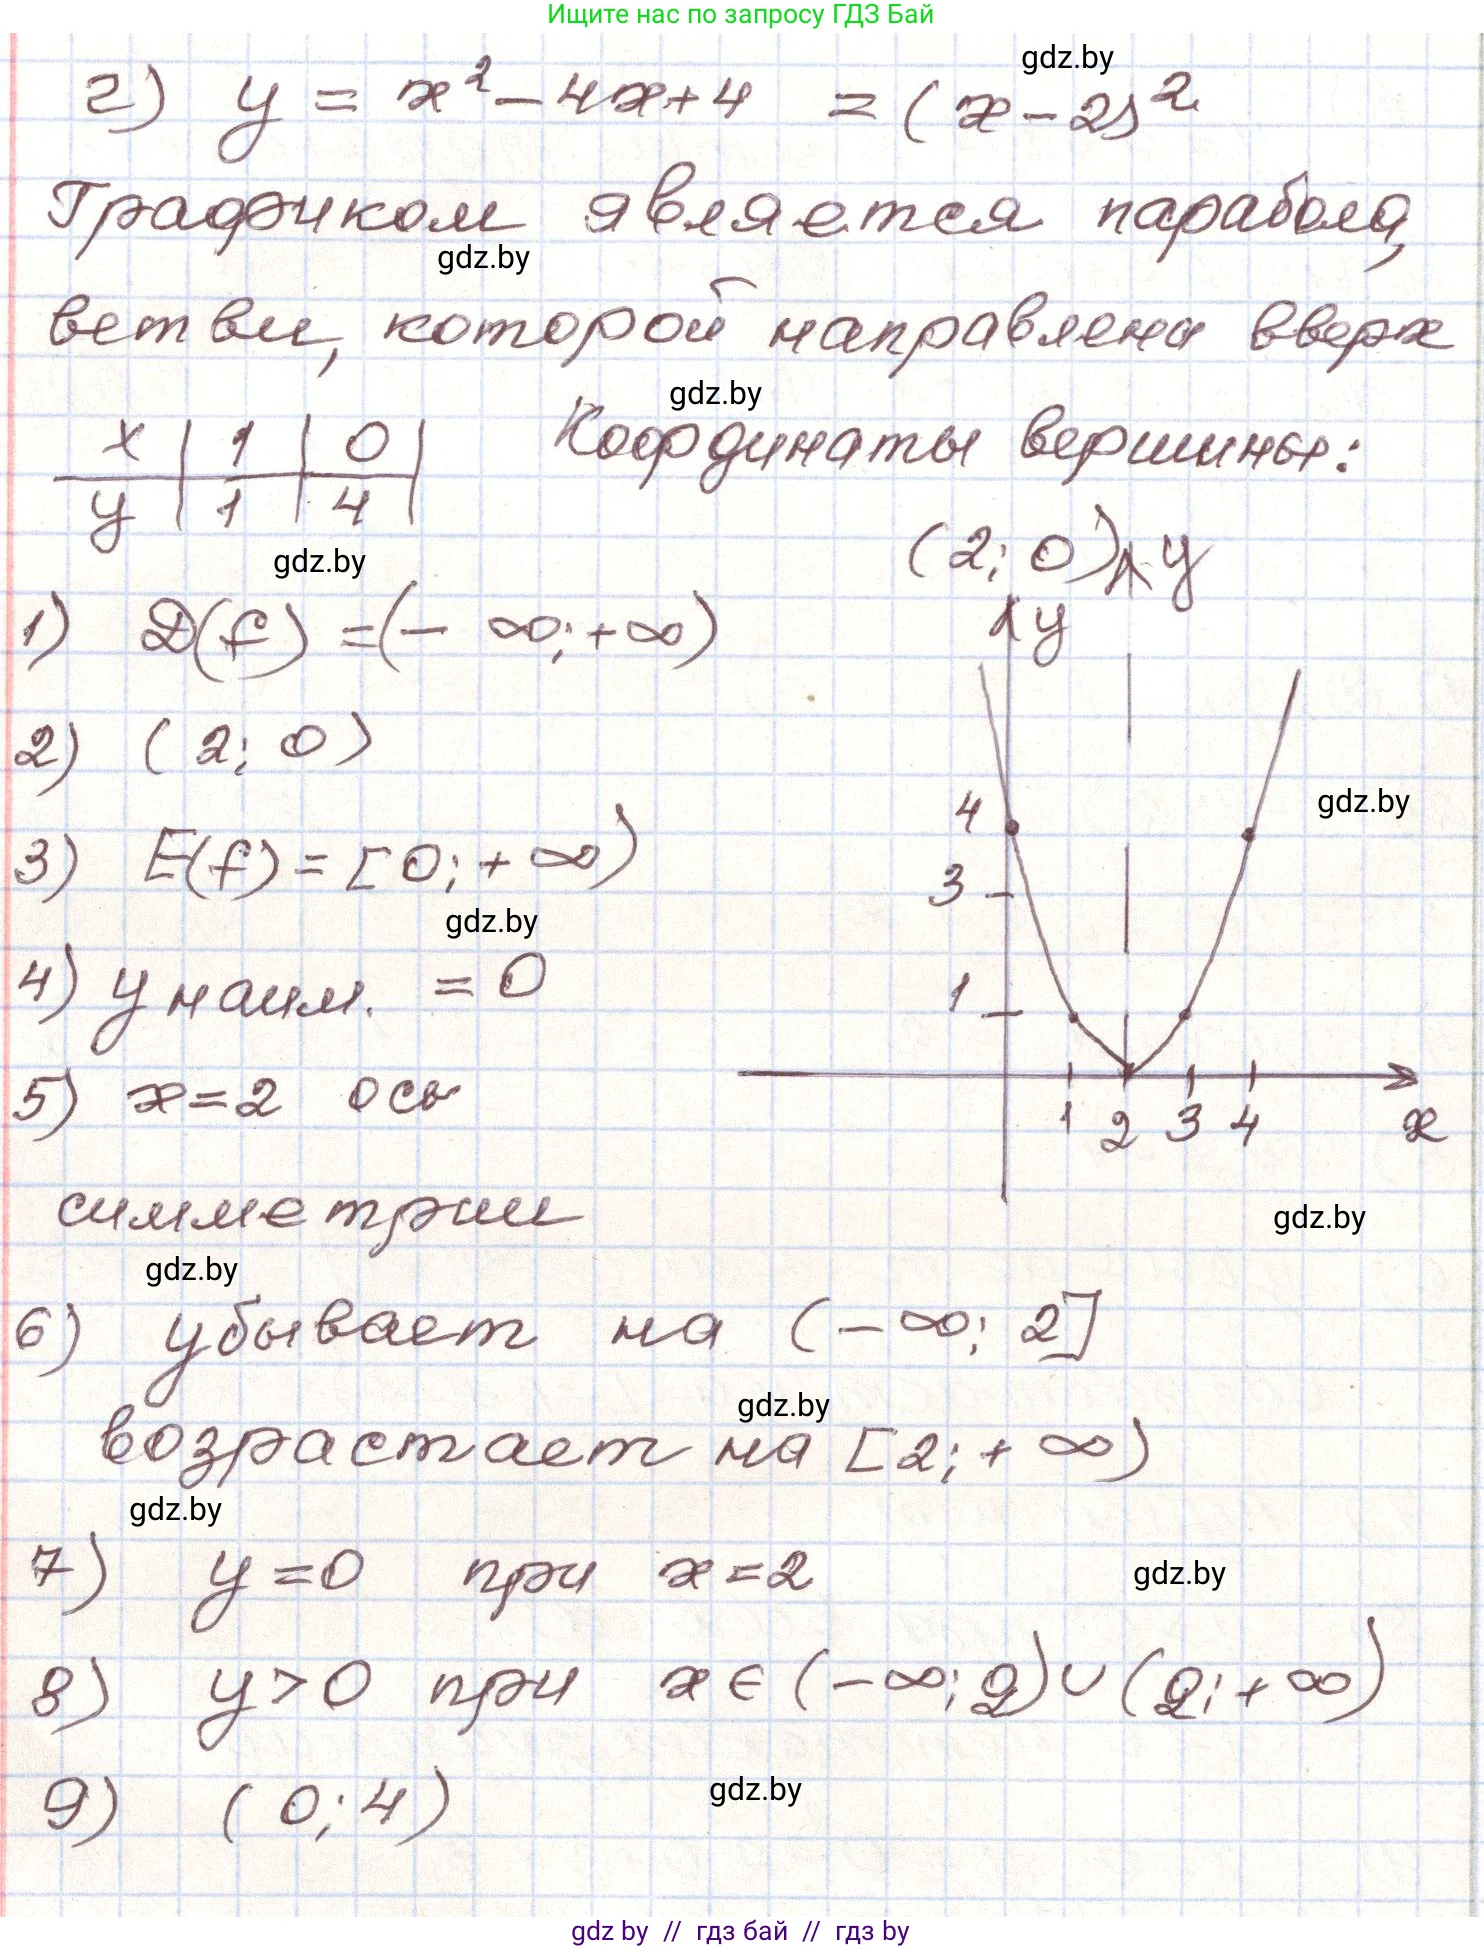 Ищите нас по запросу ГДЗ Бай
gdz.by
г) y = x² - 4x + 4 = (x - 2)²
Графиком является парабола,
gdz.by
ветви, которой направлены вверх
gdz.by
x | 1 | 0 |
y | 1 | 4 |
Координаты вершины:
(2; 0)
gdz.by
1) D(f) = (- ∞; +∞)
2) (2; 0)
3) E(f) = [0; + ∞)
gdz.by
4) y наим. = 0
5) x = 2 ось
симметрии
gdz.by
y
y
4
3
1
gdz.by
1 2 3 4 x
gdz.by
6) убывает на (- ∞; 2]
gdz.by
возрастает на [2; + ∞)
gdz.by
7) y = 0 при x = 2
gdz.by
8) y > 0 при x ∈ (- ∞; 2) ∪ (2; + ∞)
9) (0; 4)
gdz.by
gdz by // гдз бай // гдз by